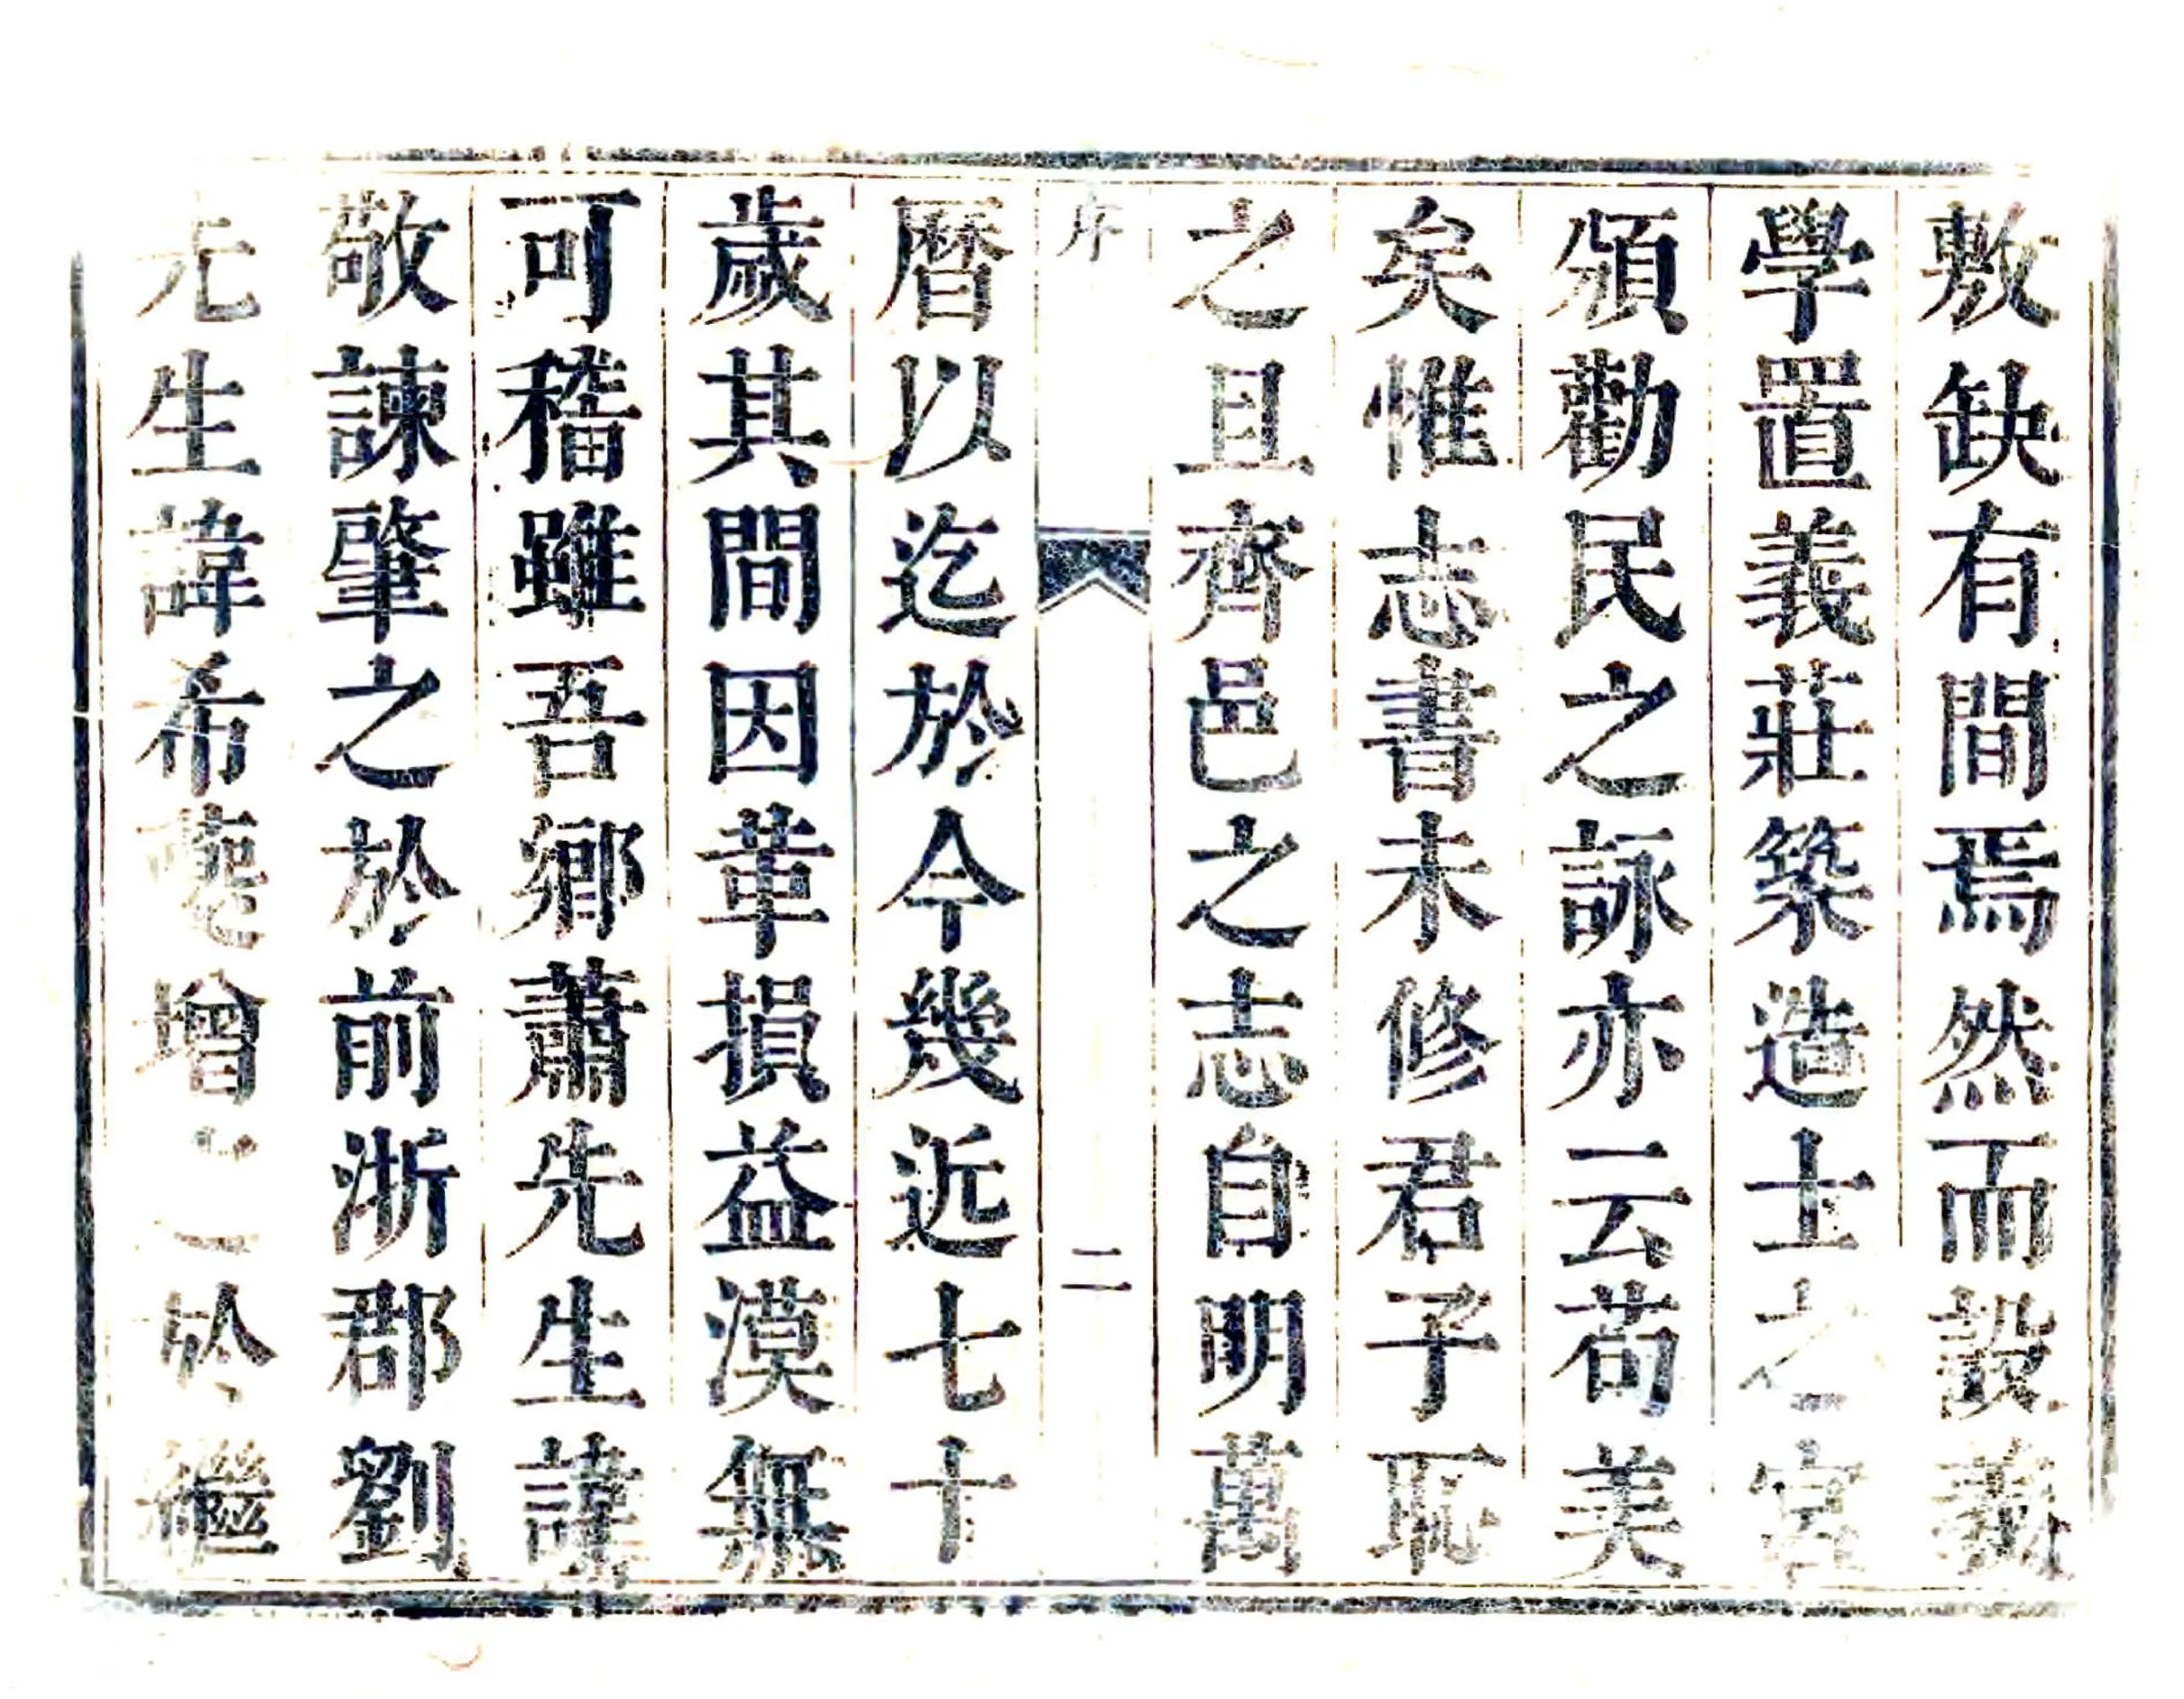 敷缺有間焉然而設義
學置義莊築造士之宮
頒勸民之詠亦云苟美
矣惟志書未修君子恥
之且齊邑之志自明萬
序 二
曆以迄於今幾近七十
歲其間因革損益漠無
可稽雖吾鄉蕭先生諱
敬諫肇之於前浙郡劉
先生諱希夔增之於繼